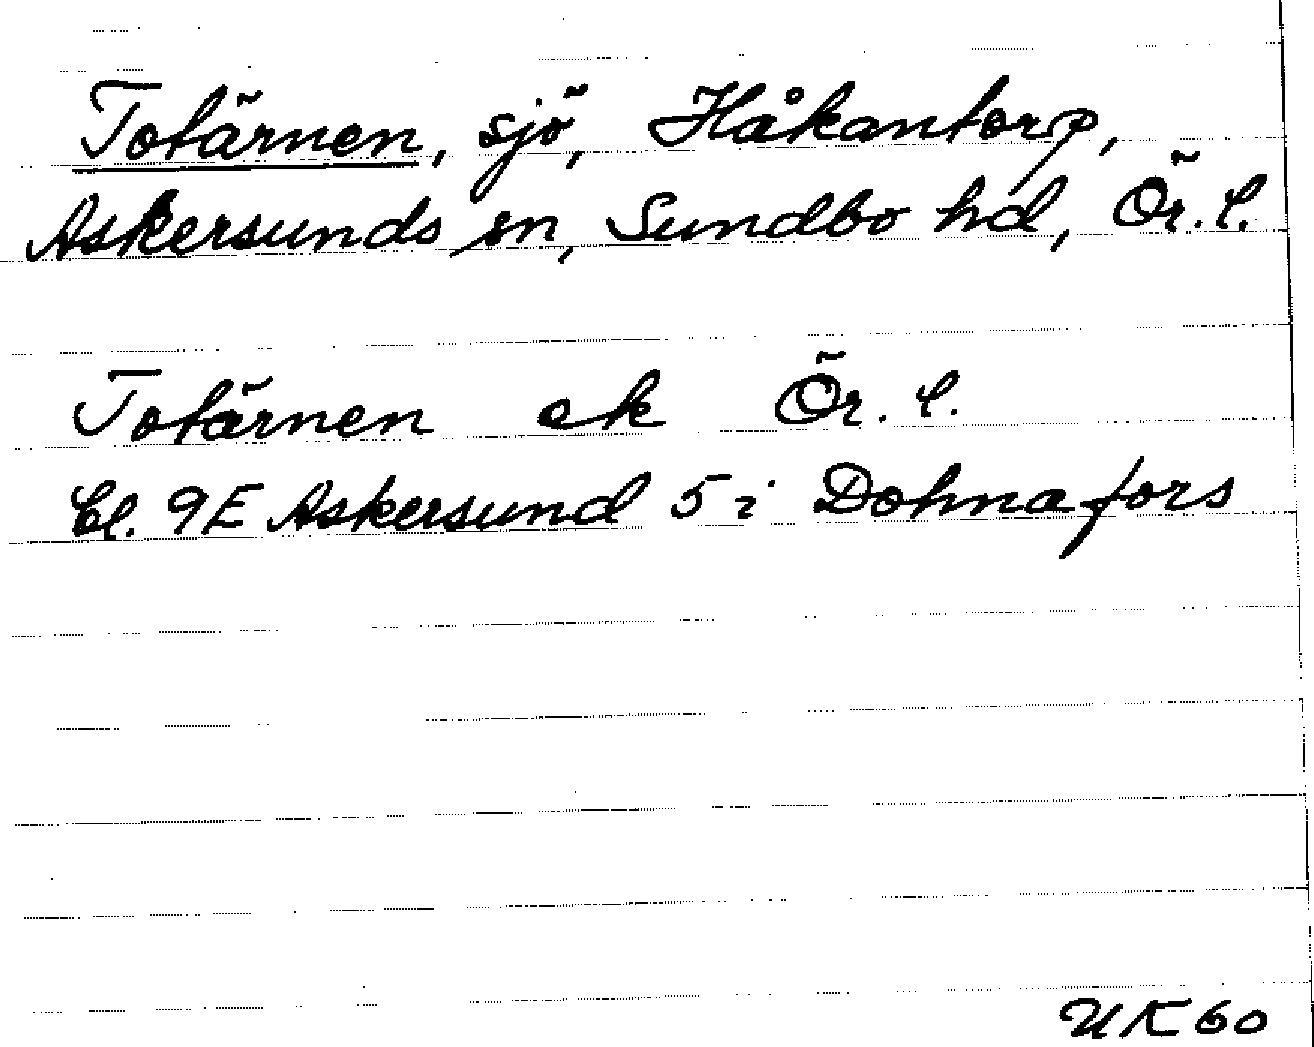 Totärnen, sjö, Håkantorp,
Askersunds sn, Sundbo hd, Ör. l.
Totärnen ek Ör. l.
Bl. 9E Askersund 5 i Dohnafors
UK 60